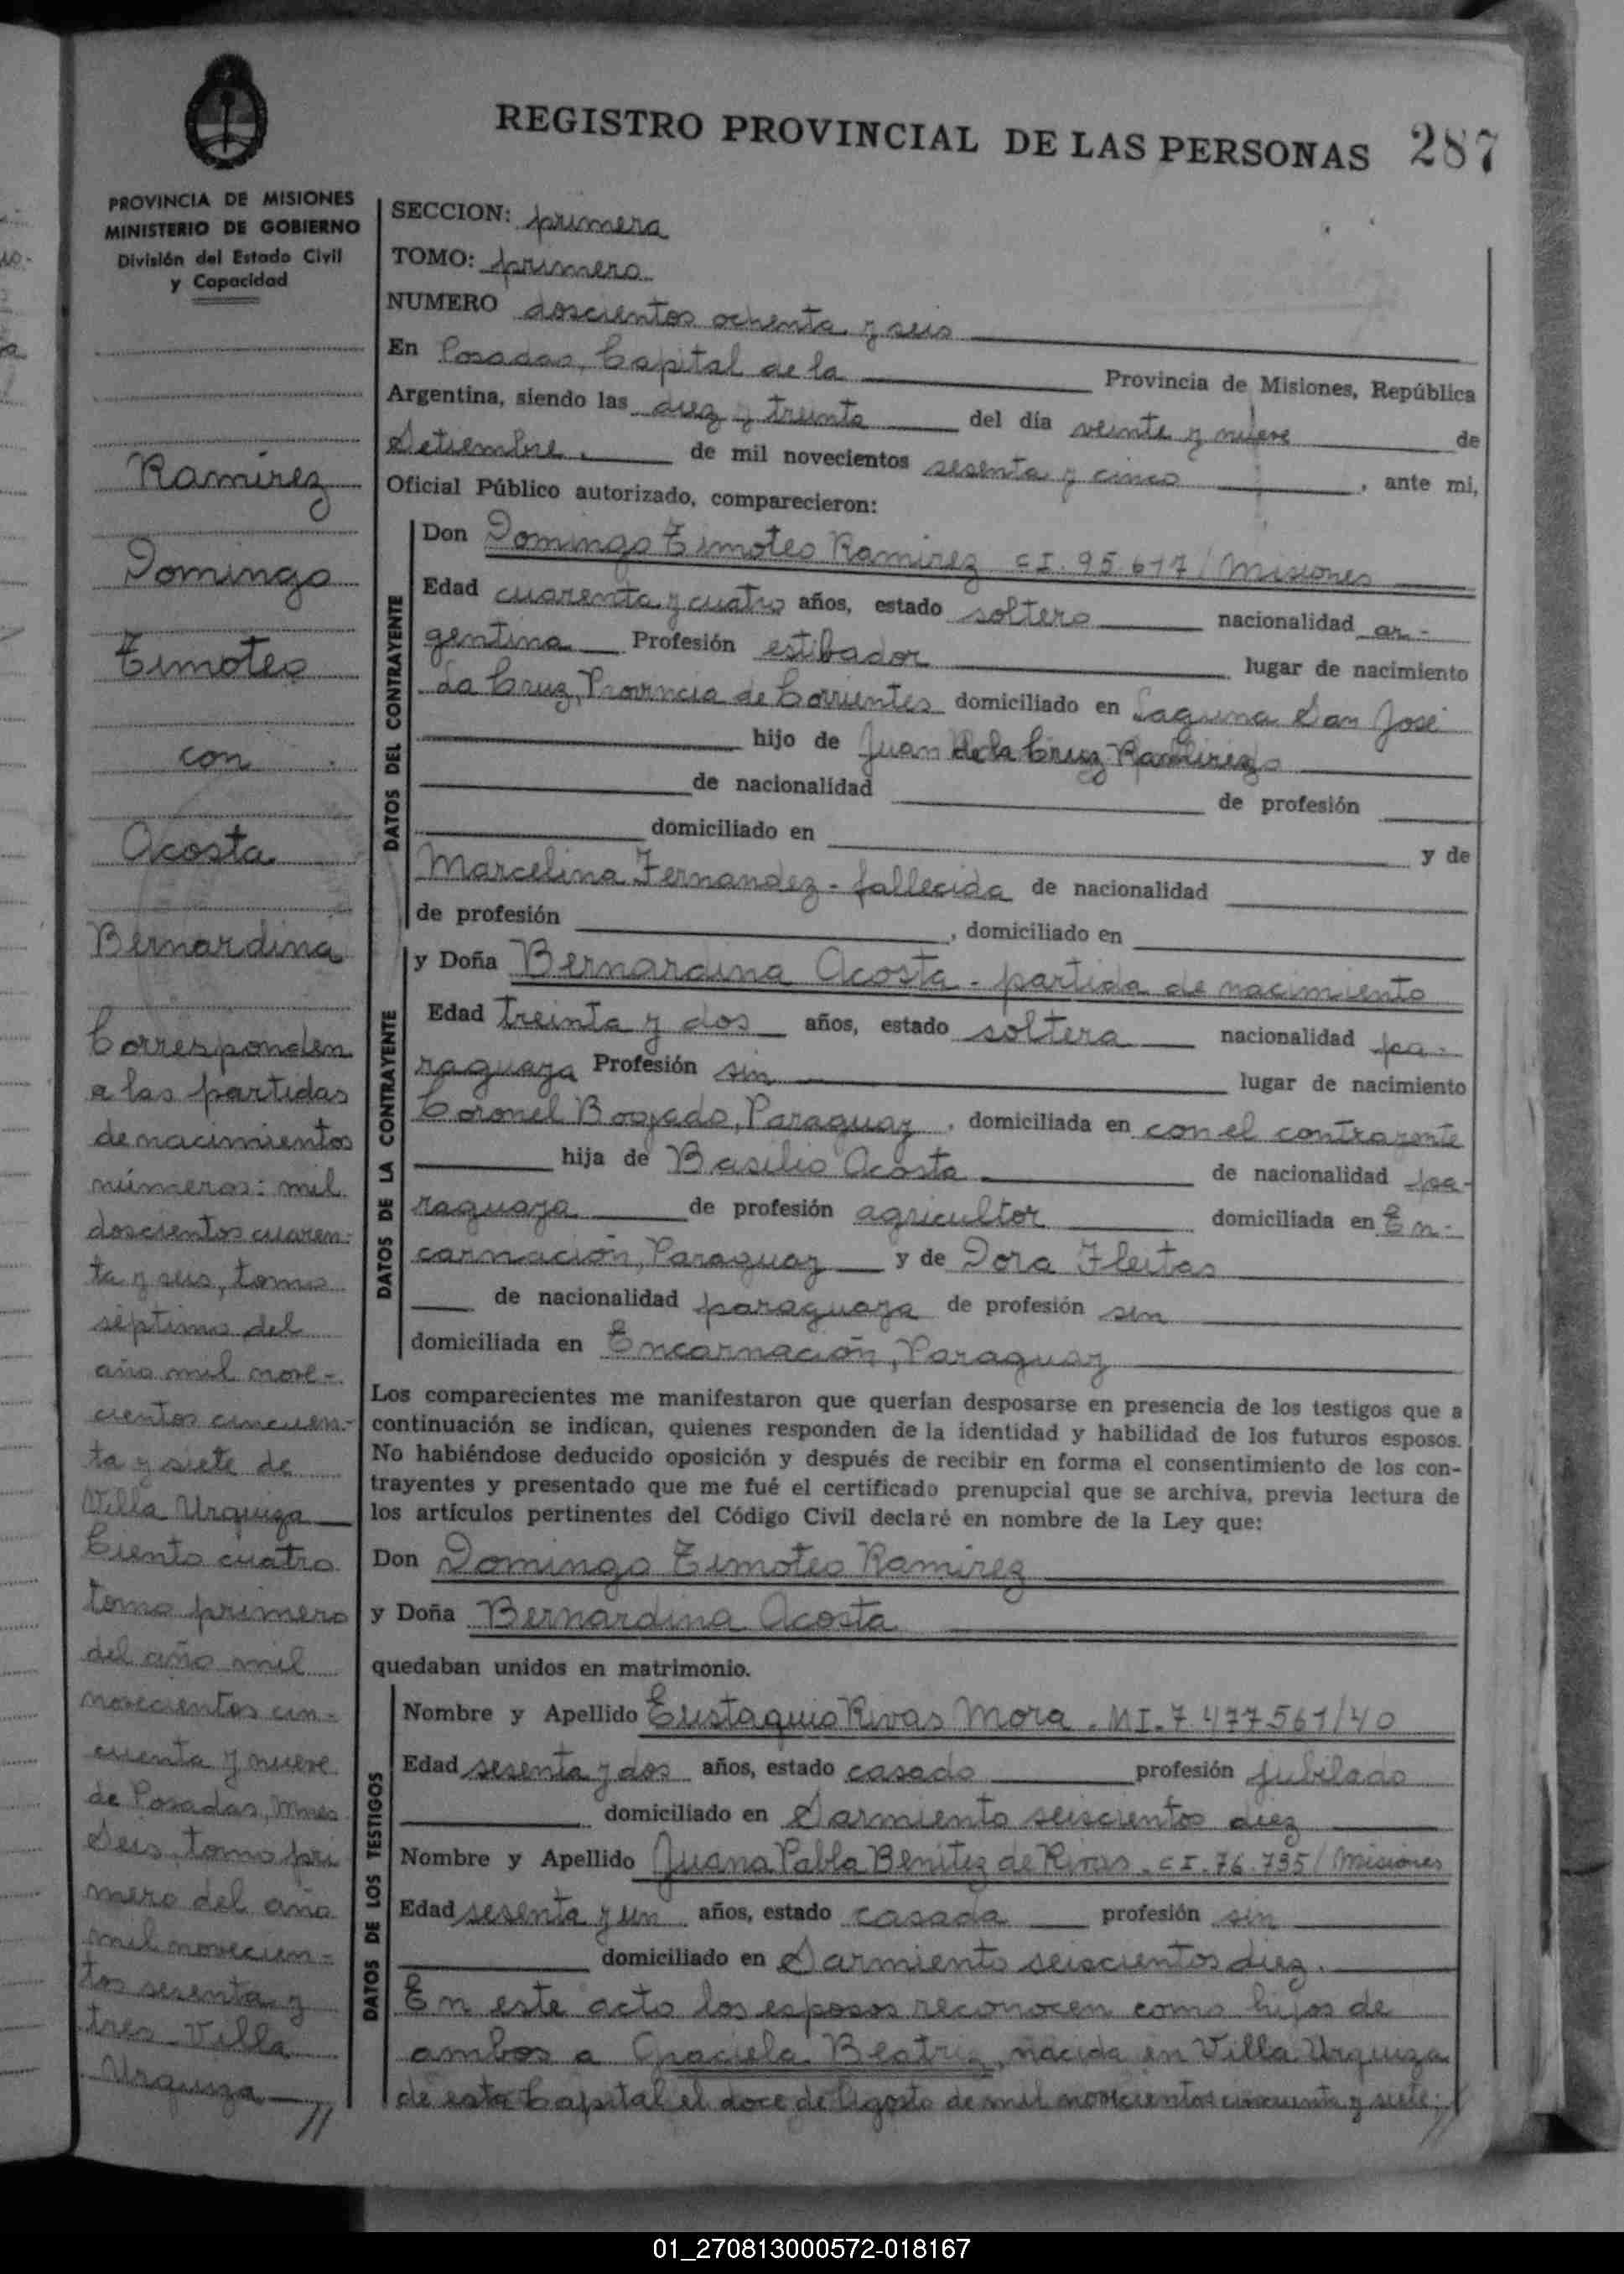 REGISTRO PROVINCIAL DE LAS PERSONAS 287
PROVINCIA DE MISIONES
MINISTERIO DE GOBIERNO
División del Estado Civil
y Capacidad
Ramirez
Domingo
Timoteo
con
Acosta
Bernardina
Corresponden
a las partidas
de nacimientos
números: mil
doscientos cuaren-
ta y seis, tomo
séptimo del
año mil nove-
cientos cincuen-
ta y siete de
Villa Urquiza
Ciento cuatro
tomo primero
del año mil
novecientos cin-
cuenta y nueve
de Posadas, Mnes
Seis, tomo pri
mero del año
mil novecien-
tos sesenta y
tres Villa
Urquiza //
SECCION: primera
TOMO: primero
NUMERO doscientos ochenta y seis
En Posadas, Capital de la Provincia de Misiones, República
Argentina, siendo las diez y treinta del día veinte y nueve de
Setiembre. de mil novecientos sesenta y cinco, ante mi,
Oficial Público autorizado, comparecieron:
DATOS DEL CONTRAYENTE
Don Domingo Timoteo Ramirez CI. 95.617/Misiones
Edad cuarenta y cuatro años, estado soltero nacionalidad ar-
gentina Profesión estibador lugar de nacimiento
La Cruz, Provincia de Corrientes domiciliado en Laguna San José
hijo de Juan de la Cruz Ramirez
de nacionalidad de profesión
domiciliado en y de
Marcelina Fernandez - fallecida de nacionalidad
de profesión , domiciliado en
DATOS DE LA CONTRAYENTE
y Doña Bernardina Acosta - partida de nacimiento
Edad treinta y dos años, estado soltera nacionalidad pa-
raguaya Profesión sin lugar de nacimiento
Coronel Bogado, Paraguay, domiciliada en con el contrayente
hija de Basilio Acosta de nacionalidad pa-
raguaya de profesión agricultor domiciliada en En-
carnación, Paraguay y de Dora Fleitas
de nacionalidad paraguaya de profesión sin
domiciliada en Encarnación, Paraguay
Los comparecientes me manifestaron que querían desposarse en presencia de los testigos que a
continuación se indican, quienes responden de la identidad y habilidad de los futuros esposos.
No habiéndose deducido oposición y después de recibir en forma el consentimiento de los con-
trayentes y presentado que me fué el certificado prenupcial que se archiva, previa lectura de
los artículos pertinentes del Código Civil declaré en nombre de la Ley que:
Don Domingo Timoteo Ramirez
y Doña Bernardina Acosta
quedaban unidos en matrimonio.
DATOS DE LOS TESTIGOS
Nombre y Apellido Eustaquio Rivas Mora. MI. 7 477561/40
Edad sesenta y dos años, estado casado profesión jubilado
domiciliado en Sarmiento seiscientos diez
Nombre y Apellido Juana Pabla Benítez de Rivas. CI. 76.735/Misiones
Edad sesenta y un años, estado casada profesión sin
domiciliado en Sarmiento seiscientos diez.
En este acto los esposos reconocen como hijos de
ambos a Graciela Beatriz, nacida en Villa Urquiza
de esta Capital el doce de Agosto de mil novecientos cincuenta y siete; //
01_270813000572-018167